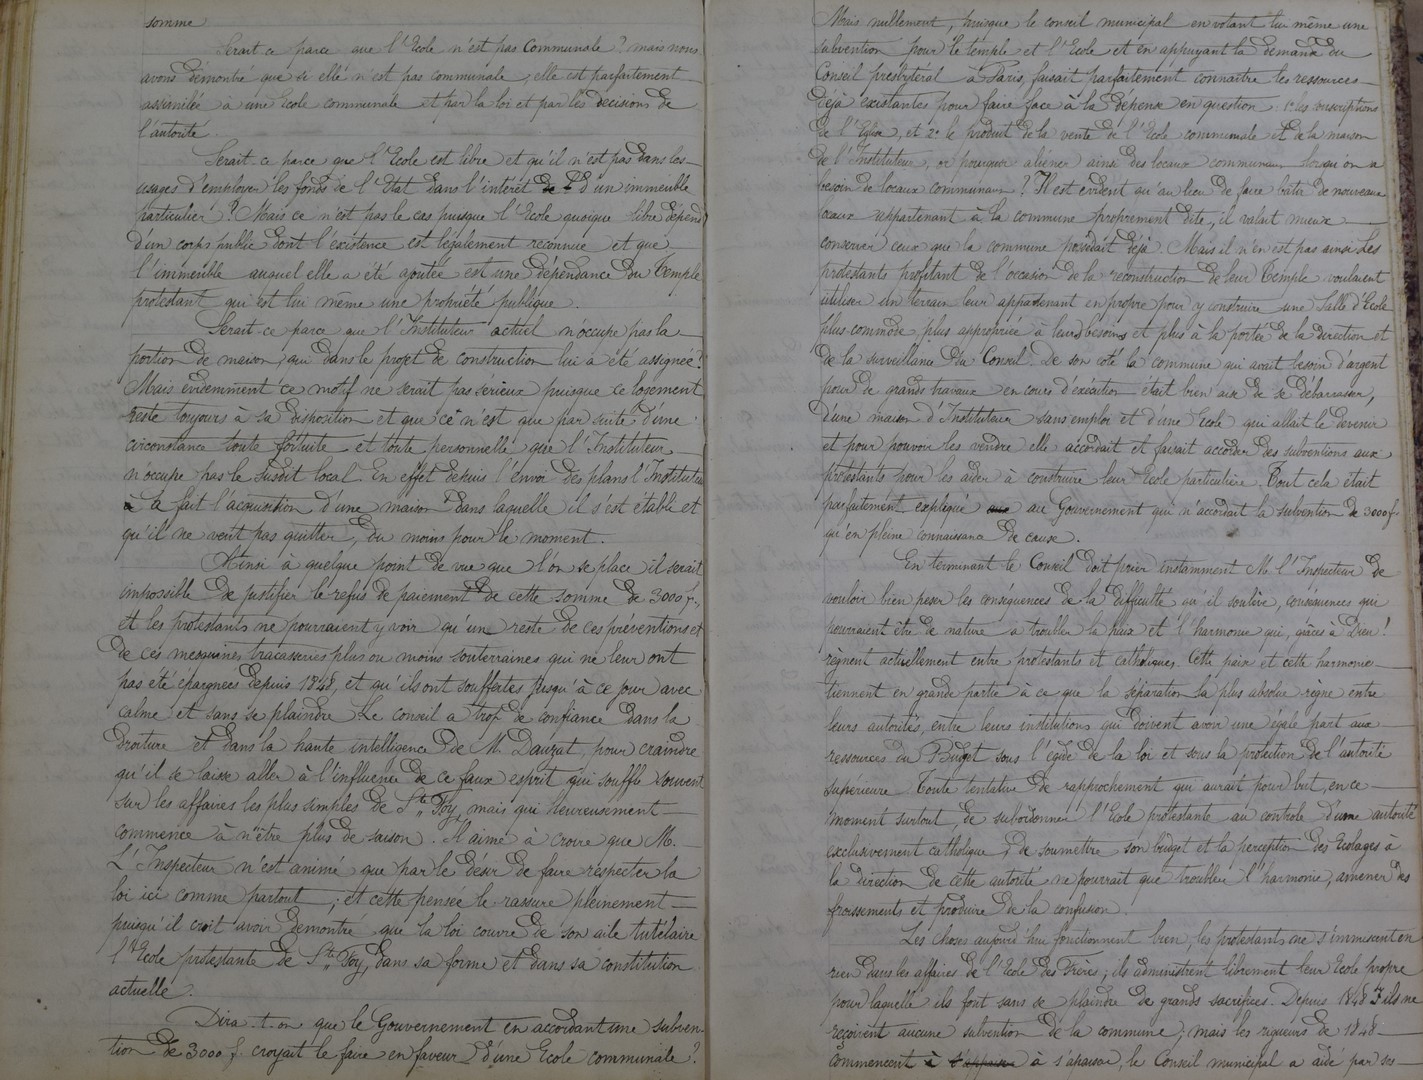 somme
Serait ce parce que l'Ecole n'est pas communale ? mais nous
avons démontré que si elle n'est pas communale, elle est parfaitement
assimilée à une Ecole communale et par la loi et par les décisions de
l'autorité.
Serait-ce parce que l'Ecole est libre et qu'il n'est pas dans les
usages d'employer les fonds de l'Etat dans l'intérêt d'un immeuble
particulier ? Mais ce n'est pas le cas puisque l'Ecole quoique libre dépend
d'un corps public dont l'existence est légalement reconnue et que
l'immeuble auquel elle a été ajoutée est une dépendance du Temple
protestant qui est lui même une propriété publique.
Serait-ce parce que l'Instituteur actuel n'occupe pas la
portion de maison, qui dans le projet de construction lui a été assignée ?
Mais évidemment ce motif ne serait pas serieux puisque ce logement
reste toujours à sa disposition et que ce n'est que par suite d'une
circonstance toute fortuite et toute personnelle que l'Instituteur
n'occupe pas le susdit local. En effet depuis l'envoi des plans l'Instituteur
a fait l'acquisition d'une maison dans laquelle il s'est établi et
qu'il ne veut pas quitter, du moins pour le moment.
Ainsi à quelque point de vue que l'on se place il serait
impossible de justifier le refus de paiement de cette somme de 3000 f,
et les protestants ne pourraient y voir qu'un reste de ces préventions et
de ces mesquines tracasseries plus ou moins souterraines qui ne leur ont
pas été épargnées depuis 1848, et qu'ils ont souffertes jusqu'à ce jour avec
calme et sans se plaindre. Le conseil a trop de confiance dans la
droiture et dans la haute intelligence de M. Dauzat, pour craindre
qu'il se laisse aller à l'influence de ce faux esprit qui souffle souvent
sur les affaires les plus simples de Ste Foy, mais qui heureusement
commence à n'être plus de saison. Il aime à croire que M.
L'Inspecteur n'est animé que par le désir de faire respecter la
loi ici comme partout ; et cette pensée le rassure pleinement
puisqu'il croit avoir démontré que la loi couvre de son aile tutélaire
l'Ecole protestante de Ste Foy, dans sa forme et dans sa constitution
actuelle.
Dira-t-on que le Gouvernement en accordant une subven-
tion de 3000 f. croyait le faire en faveur d'une Ecole communale ?
Mais nullement, puisque le conseil municipal en votant lui même une
subvention pour le temple et l'Ecole et en appuyant la demande du
Conseil presbytéral à Paris, faisait parfaitement connaitre les ressources
déjà existantes pour faire face à la dépense en question : 1° les souscriptions
de l'Eglise, et 2° le produit de la vente de l'Ecole communale et de la maison
de l'Instituteur, or pourquoi aliéner ainsi des locaux communaux lorsqu'on a
besoin de locaux communaux ? Il est évident qu'au lieu de faire bâtir de nouveaux
locaux appartenant à la commune proprement dite, il valait mieux
conserver ceux que la commune possédait déjà. Mais il n'en est pas ainsi. Les
protestants profitant de l'occasion de la reconstruction de leur Temple voulaient
utiliser un terrain leur appartenant en propre pour y construire une Salle d'Ecole
plus commode, plus appropriée à leurs besoins et plus à la portée de la direction et
de la surveillance du Conseil. De son coté la commune qui avait besoin d'argent
pour de grands travaux en cours d'exécution était bien aise de se débarrasser,
d'une maison d'Instituteur sans emploi et d'une Ecole qui allait le devenir
et pour pouvoir les vendre elle accordait et faisait accorder des subventions aux
protestants pour les aider à construire leur Ecole particulière. Tout cela était
parfaitement expliqué au Gouvernement qui n'accordait la subvention de 3000 f
qu'en pleine connaissance de cause.
En terminant le Conseil doit prier instamment M. l'Inspecteur de
vouloir bien peser les conséquences de la difficulté qu'il soulève, conséquences qui
pourraient être de nature à troubler la paix et l'harmonie qui, grâces à Dieu !
règnent actuellement entre protestants et catholiques. Cette paix et cette harmonie
tiennent en grande partie à ce que la séparation la plus absolue règne entre
leurs autorités, entre leurs institutions qui doivent avoir une égale part aux
ressources du Budget sous l'égide de la loi et sous la protection de l'autorité
supérieure. Toute tentative de rapprochement qui aurait pour but, en ce
moment surtout de subordonner l'Ecole protestante au controle d'une autorité
exclusivement catholique, de soumettre son budget et la perception des Ecolages à
la direction de cette autorité ne pourrait que troubler l'harmonie, amener des
froissements et produire de la confusion.
Les choses aujourd'hui fonctionnent bien, les protestants ne s'immiscent en
rien dans les affaires de l'Ecole des Frères ; ils administrent librement leur Ecole propre
pour laquelle ils font sans se plaindre de grands sacrifices. Depuis 1848 ils ne
reçoivent aucune subvention de la commune ; mais les rigueurs de 1848
commencent à s'apaiser, le Conseil municipal a aidé par ses